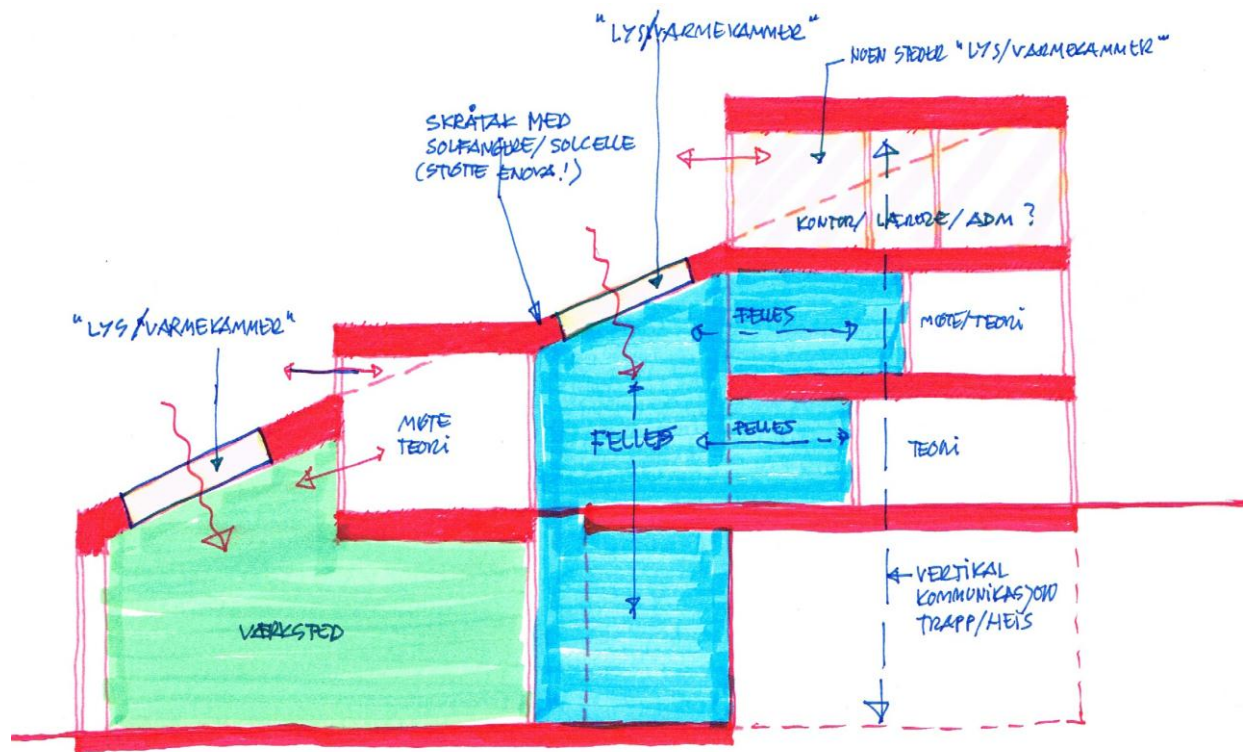 "LYS/VARMEKAMMER"
NOEN STEDER "LYS/VARMEKAMMER"
SKRÅTAK MED
SOLFANGERE/SOLCELLE
(STØTTE ENOVA!)
KONTOR/LÆRERE/ADM ?
"LYS/VARMEKAMMER"
FELLES
MØTE/TEORI
MØTE
TEORI
FELLES
FELLES
TEORI
VERTIKAL
KOMMUNIKASJON
TRAPP/HEIS
VÆRKSTED